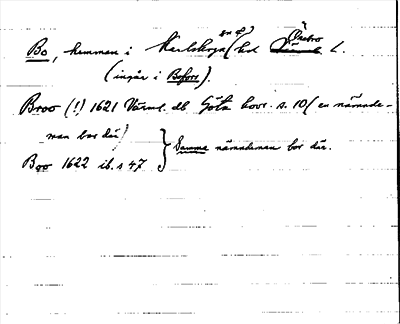 Bo, hemman i Karlskoga (hd Örebro L.
(ingår i Bofors).
Broo (!) 1621 Värml. db. Göta hovr. s. 10 (en nämnde-
man bor där)
Boo 1622 ib. s 47 } Samma nämndeman bor där.